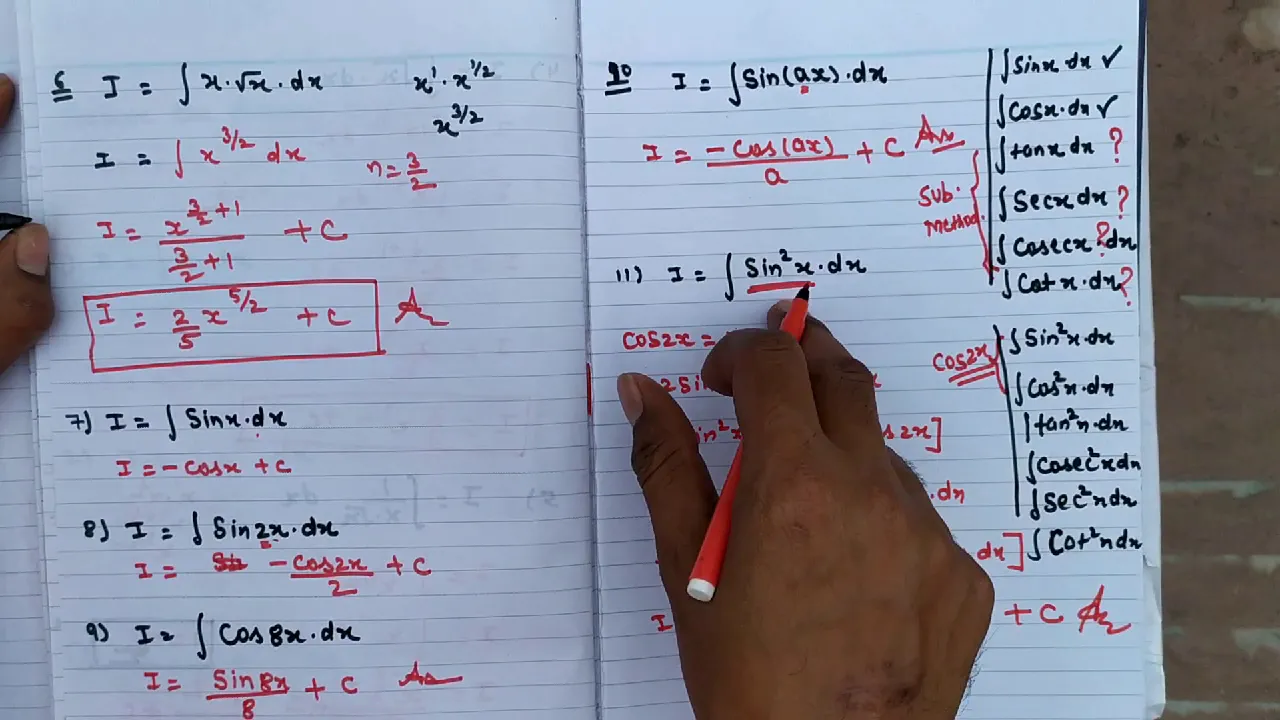 6 I = ∫ x·√x·dx x¹·x^1/2
x^3/2
I = ∫ x^3/2 dx n = 3/2
I = x^(3/2+1) / (3/2+1) + C
I = 2/5 x^5/2 + C Ans
7) I = ∫ Sinx·dx
I = -Cosx + C
8) I = ∫ Sin2x·dx
I = -Cos2x/2 + C
9) I = ∫ Cos8x·dx
I = Sin8x/8 + C Ans
10 I = ∫ Sin(ax)·dx
I = -Cos(ax)/a + C Ans
11) I = ∫ Sin²x·dx
Cos2x =
2Sin
Cos2x]
·dx
dx]
I + C Ans
∫Sinx dx ✓
∫Cosx·dx ✓
∫tanx dx ?
∫Secx dx ?
∫Cosecx ? dx
∫Cotx·dx ?
Sub·
Method·
Cos2x
∫Sin²x·dx
∫Cos²x·dx
∫tan²x·dx
∫Cosec²xdx
∫Sec²xdx
∫Cot²xdx